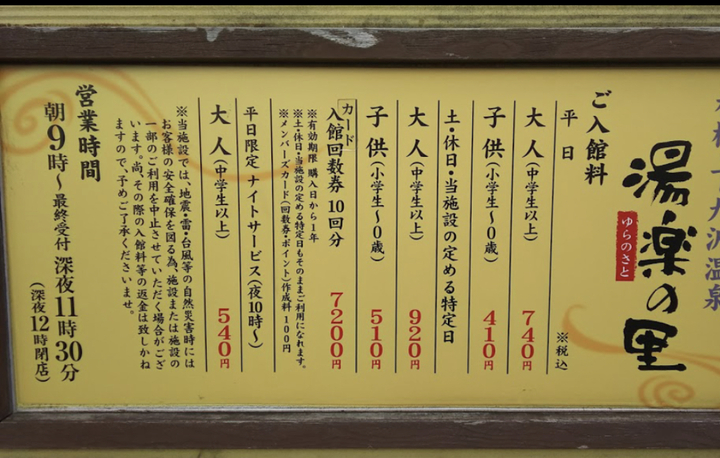 大沢温泉
湯楽の里
ゆらのさと
ご入館料
平日
※税込
大人(中学生以上) 740円
子供(小学生~0歳) 410円
土・休日・当施設の定める特定日
大人(中学生以上) 920円
子供(小学生~0歳) 510円
カード
入館回数券 10回分 7200円
※有効期限 購入日から1年
※土・休日・当施設の定める特定日もそのままご利用になれます。
※メンバーズカード(回数券・ポイント)作成料100円
平日限定 ナイトサービス(夜10時~)
大人(中学生以上) 540円
※当施設では、地震・雷・台風等の自然災害時には
お客様の安全確保を図る為、施設または施設の
一部のご利用を中止させていただく場合がござ
います。尚、その際の入館料等の返金は致しかね
ますので、予めご了承くださいませ。
営業時間
朝9時~最終受付 深夜11時30分
(深夜12時閉店)